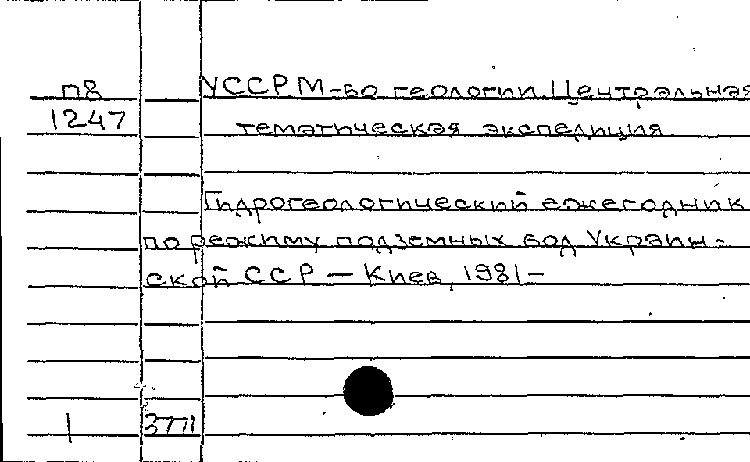 п8 УССР М-во геологии. Центральная
1247 тематическая экспедиция.
Гидрогеологический ежегодник
по режиму подземных вод Украин-
ской ССР — Киев, 1981—
1 3771